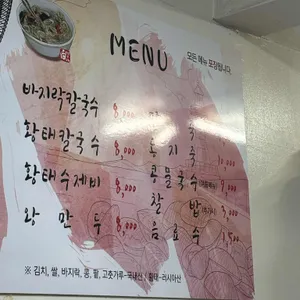 MENU
모든 메뉴 포장됩니다.
바지락칼국수 8,000
황태칼국수 8,000
황태수제비 8,000
왕만두 8,000
죽
동지죽 10,000
콩물국수
찰밥 3,000
음료수 1,500
※ 김치, 쌀, 바지락, 콩, 팥, 고춧가루-국내산 / 황태-러시아산